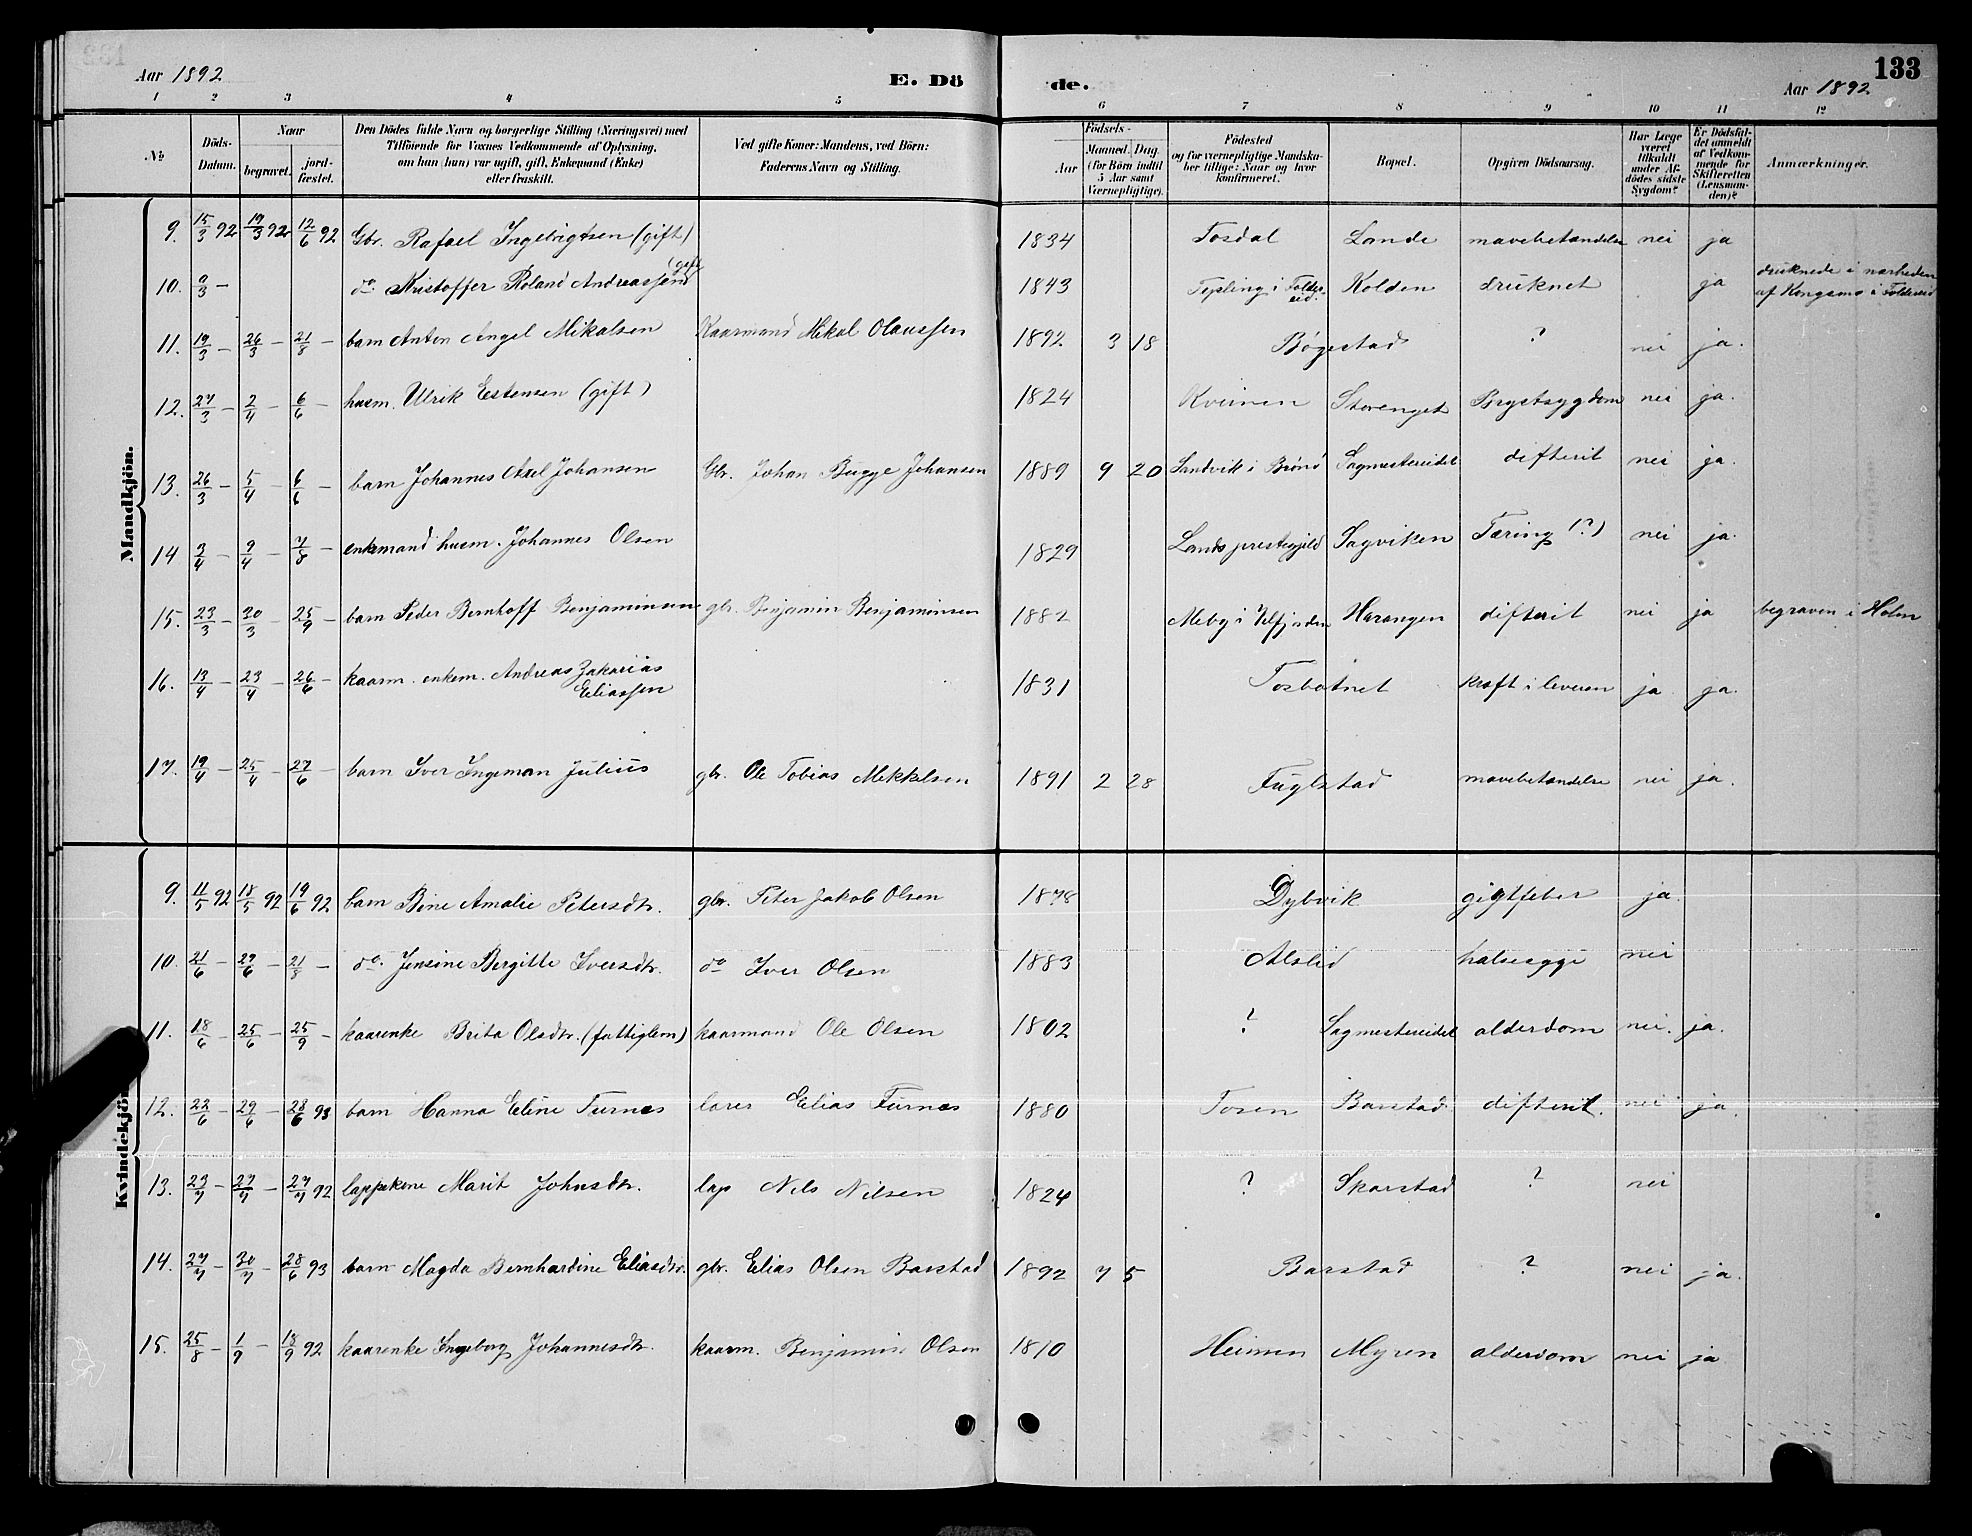 133
Aar 1892 E. Dö de. Aar 1892
1 2 3 4 5 6 7 8 9 10 11 12
No. Döds-Datum. Naar begravet. jordfæstet. Den Dödes fulde Navn og borgerlige Stilling (Næringsvei) med Tilföiende for Voxnes Vedkommende af Oplysning, om han (hun) var ugift, gift, Enkemand (Enke) eller fraskilt. Ved gifte Koner: Mandens, ved Börn: Faderens Navn og Stilling. Födsels- Aar Maaned. Dag. (for Börn indtil 5 Aar samt Værnepligtige). Födested og for værnepligtige Mandskaber tillige: Naar og hvor konfirmeret. Bopæl. Opgiven Dödsaarsag. Har Læge været tilkaldt under Afdödes sidste Sygdom? Er Dödsfaldet anmeldt af Vedkommende for Skifteretten (Lensmanden)? Anmærkninger.
Mandkjön.
9. 15/3 92 19/3 92 12/6 92 Gbr. Rafael Ingebrigtsen (gift) 1834 Tosdal Lande mavebetændelse nei ja
10. 9/3 — do Kristoffer Roland Andreassen (gift) 1843 Tepling i Foldereid Kolden druknet ja druknede i nærheden af Kongsmo i Foldereid
11. 19/3 — 26/3 — 21/8 — barn Anton Angel Mikalsen Kaarmand Mekal Olaussen 1892 3 18 Bøgestad ? nei ja.
12. 27/3 — 2/4 — 6/6 — husm. Ulrik Estensen (gift) 1824 Kveinen Storenget Brystsygdom nei ja.
13. 26/3 — 5/4 — 6/6 — barn Johannes Axel Johansen Gbr. Johan Bugge Johansen 1889 9 20 Sandvik i Brønø Sagmestereidet difterit nei ja.
14 3/4 — 9/4 — 7/8 — enkemand husm. Johannes Olsen 1829 Lands prestegjeld Sagviken Tæring (?) nei ja.
15. 23/3 — 30/3 — 25/9 — barn Peder Bernhoff Benjaminsen gbr. Benjamin Benjaminsen 1882 Meby i Velfjorden Harangen difterit nei ja begraven i Holm
16. 13/4 — 23/4 — 26/6 — kaarm. enkem. Andreas Zakarias Eliassen 1831 Tosbotnet kræft i leveren ja ja.
17. 19/4 — 25/4 — 27/6 — barn Iver Ingeman Julius gbr. Ole Tobias Mekkelsen 1891 2 28 Fuglstad mavebetændelse nei ja.
Kvindekjön.
9. 11/5 92 18/5 92 19/6 92 barn Bine Amalie Petersdtr. gbr. Peter Jakob Olsen 1878 Dybvik gigtfeber ja.
10. 21/6 — 29/6 — 21/8 — do. Jensine Bergitte Iversdtr. do Iver Olsen 1883 Alslid halssyge nei
11. 18/6 — 25/6 — 25/9 — kaarenke Brita Olsdtr. (fattiglem) kaarmand Ole Olsen 1802 ? Sagmestereidet alderdom nei. ja.
12. 22/6 — 29/6 — 28/6 93 barn Hanna Eline Furnes lærer Elias Furnes 1880 Tosen Barstad difterit. nei ja.
13. 23/7 — 27/7 — 27/7 92 lappekone Marit Johnsdtr. lap Nils Nilsen 1824 ? Skarstad ? nei
14. 27/7 — 30/7 — 28/6 93 barn Magda Bernhardine Eliasdtr. gbr. Elias Olsen Barstad 1892 7 5 Barstad ? nei ja.
15. 25/8 — 1/9 — 18/9 92 kaarenke Ingeborg Johannesdtr. kaarm. Benjamin Olsen 1810 Heimen Myren alderdom nei ja